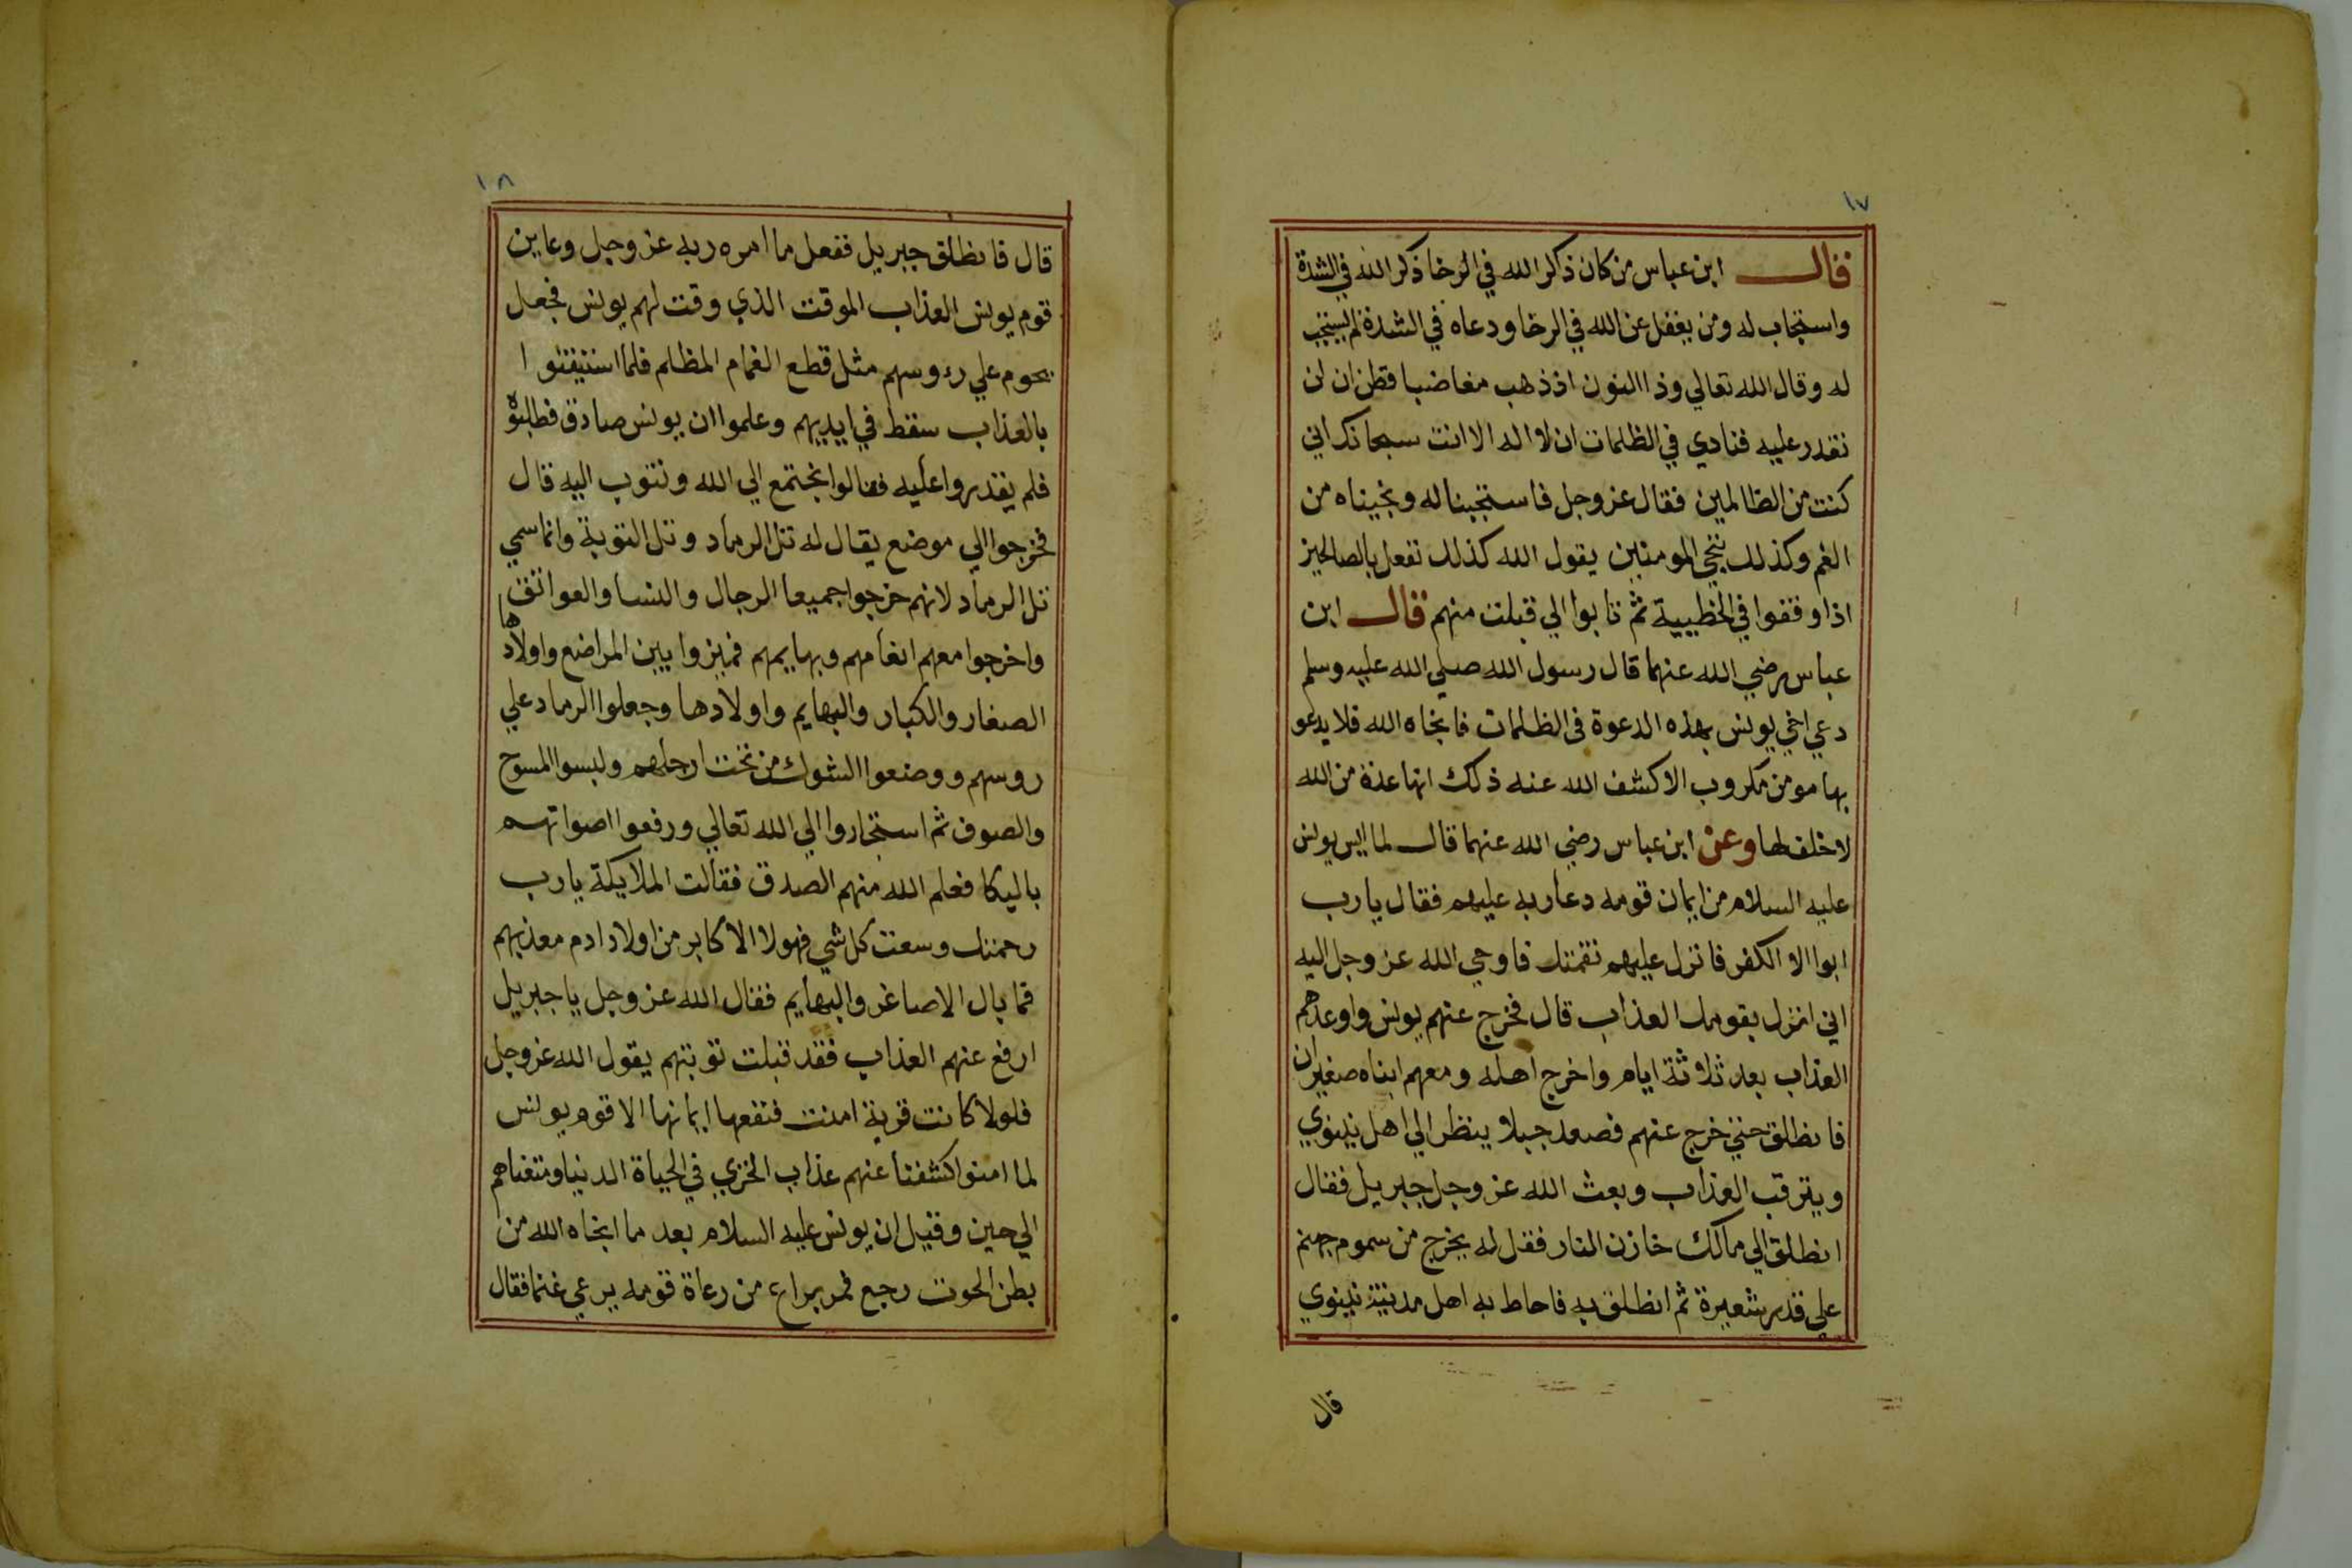 ١٧
قال ابن عباس من كان ذكر الله في الرخا ذكر الله في الشدة
واستجاب له ومن يغفل عن الله في الرخا ودعاه في الشدة لم يستجب
له وقال الله تعالي وذا النون اذ ذهب مغاضبا فظن ان لن
نقدر عليه فنادي في الظلمات ان لا اله الا انت سبحانك اني
كنت من الظالمين فقال عز وجل فاستجبنا له ونجيناه من
الغم وكذلك ننجي المومنين يقول الله كذلك نفعل بالصالحين
اذا وقفوا في الخطيية ثم تابوا الي قبلت منهم قال ابن
عباس رضي الله عنهما قال رسول الله صلي الله عليه وسلم
دعي اخي يونس بهذه الدعوة في الظلمات فانجاه الله فلا يدعو
بها مومن مكروب الا كشف الله عنه ذلك انها عدة من الله
لا خلف لها وعن ابن عباس رضي الله عنهما قال لما ايس يونس
عليه السلام من ايمان قومه دعا ربه عليهم فقال يا رب
ابوا الا الكفر فانزل عليهم نقمتك فاوحي الله عز وجل اليه
اني انزل بقومك العذاب قال فخرج عنهم يونس واوعدهم
العذاب بعد ثلاثة ايام واخرج اهله ومعهم ابناه صغيران
فانطلق حتي خرج عنهم فصعد جبلا ينظر الي اهل نينوي
ويترقب العذاب وبعث الله عز وجل جبريل فقال
انطلق الي مالك خازن النار فقل له يخرج من سموم جهنم
علي قدر شعيرة ثم انطلق به فاحاط به اهل مدينة نينوي
قال
١٨
قال فانطلق جبريل ففعل ما امره ربه عز وجل وعاين
قوم يونس العذاب الموقت الذي وقت لهم يونس فجعل
يحوم علي رءوسهم مثل قطع الغمام المظلم فلما استيقنوا
بالعذاب سقط في ايديهم وعلموا ان يونس صادق فطلبوه
فلم يقدروا عليه فقالوا نجتمع الي الله ونتوب اليه قال
فخرجوا الي موضع يقال له تل الرماد وتل التوبة وانما سمي
تل الرماد لانهم خرجوا جميعا الرجال والنسا والعواتق
واخرجوا معهم انعامهم وبهايمهم فميزوا بين المراضع واولادها
الصغار والكبار والبهايم واولادها وجعلوا الرماد علي
روسهم ووضعوا الشوك من تحت ارجلهم ولبسوا المسوح
والصوف ثم استجاروا الي الله تعالي ورفعوا اصواتهم
بالبكا فعلم الله منهم الصدق فقالت الملايكة يا رب
رحمتك وسعت كل شي فهولا الاكابر من اولاد ادم معذبهم
فما بال الاصاغر والبهايم فقال الله عز وجل يا جبريل
ارفع عنهم العذاب فقد قبلت توبتهم يقول الله عز وجل
فلولا كانت قرية امنت فنفعها ايمانها الا قوم يونس
لما امنوا كشفنا عنهم عذاب الخزي في الحياة الدنيا ومتعناهم
الي حين وقيل ان يونس عليه السلام بعد ما انجاه الله من
بطن الحوت رجع فمر براع من رعاة قومه يرعي غنما فقال